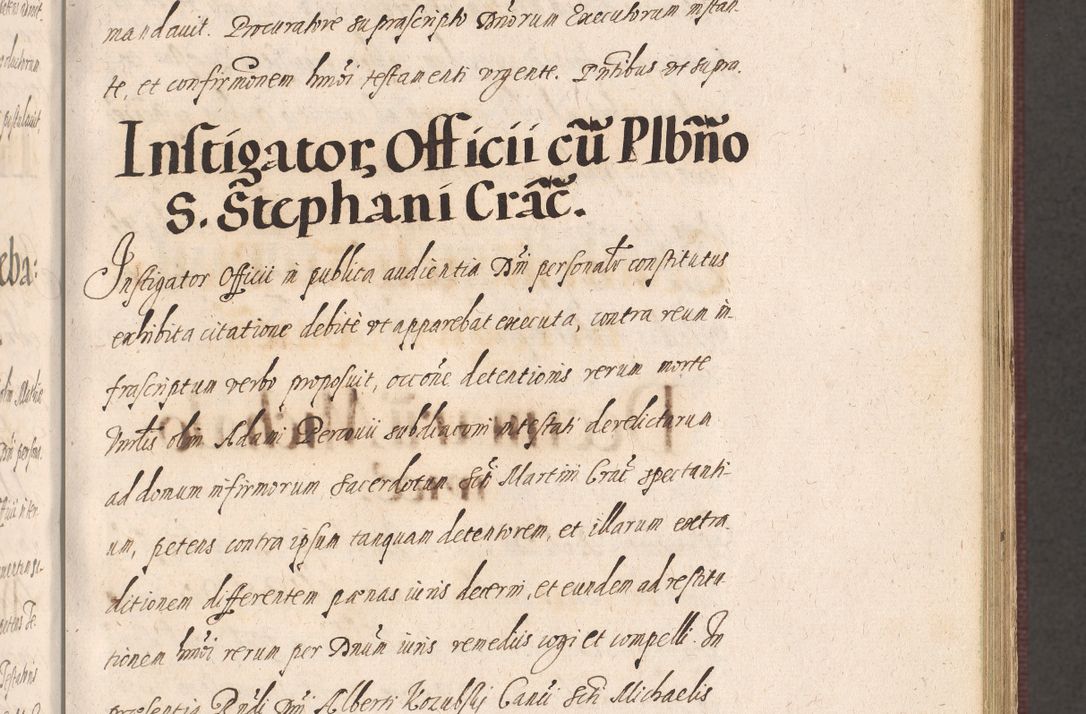 mandavit. Procuratore supra scripto Dnorum Executorum instan
te, et confirmonem hmoi testamenti urgente. Pntibus ut supra.
Instigator Officii cũ Plbño
S. Stephani Crac̃.
Instigator Officii in publica audientia Dni personalr constitutus
exhibita citatione debitè ut apparebat executa, contra reum in-
frascriptum verbo proposuit, occone detentionis rerum morte
olim Adami Percovii subdiaconi intestati derelictarum
ad domum infirmorum sacerdotum Scti Martini Crac spectanti-
um, petens contra ipsum tanquam detentorem, et illarum extra
ditionem differentem pænas iuris decerni, et eundem ad restitu
tionem hmoi rerum per Dnum iuris remediis cogi et compelli. In
presentia Rndi Dni Alberti Kozubsky Canci Scti Michaelis